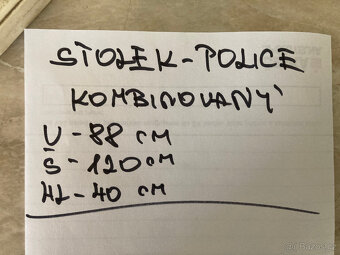 STOLEK-POLICE
KOMBINOVANÝ
V-88 CM
Š-120 CM
HL-40 CM